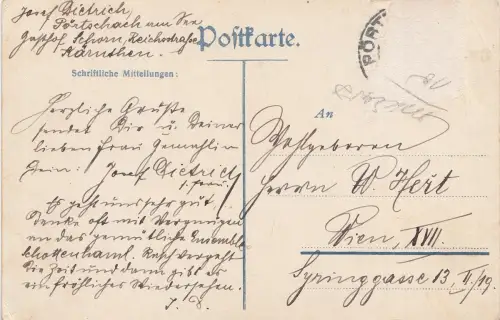 Josef Dietrich,
Pörtschach am See
Gasthof Schorn, Reichsstrasse
Kärnthen.
Postkarte.
Schriftliche Mitteilungen:
Herzliche Grüße
sendet Dir u. Deiner
lieben Frau Gemahlin
Dein: Josef Dietrich
s. Frau!
Es geht uns sehr gut!
denke oft mit Vergnügen
an das gemütliche Ensemble
Schottenhaml. Rasch vergeht
die Zeit und dann gibt es
ein fröhliches Wiedersehen.
J. D.
PÖRT
An
Wohlgeboren
Herrn W. Hert
Wien, XVII.
Syringgasse 13, II/19.